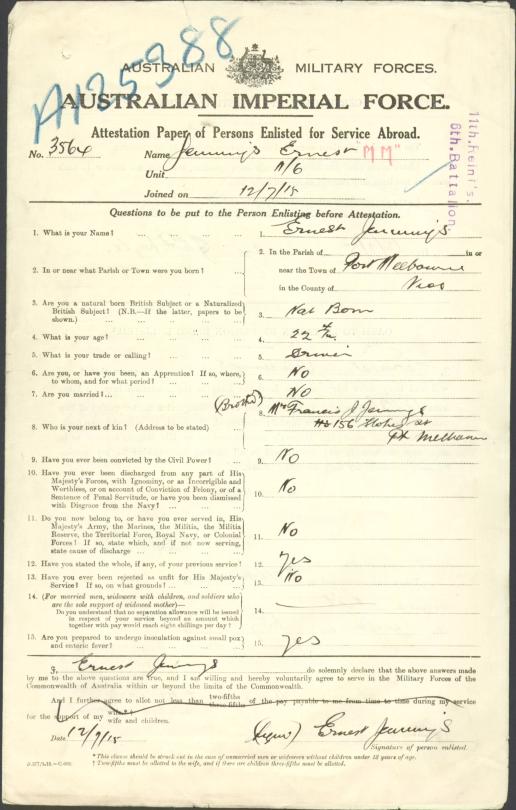 A125988
AUSTRALIAN MILITARY FORCES.
AUSTRALIAN IMPERIAL FORCE.
Attestation Paper of Persons Enlisted for Service Abroad.
11th. Reinf's.
6th. Battalion.
No. 3564 Name Jennings Ernest "MM"
Unit
Joined on 12/7/15
Questions to be put to the Person Enlisting before Attestation.
1. What is your Name? ... ... ... ... 1. Ernest Jennings
2. In or near what Parish or Town were you born? ... 2. In the Parish of in or
near the Town of Port Melbourne
in the County of Vic
3. Are you a natural born British Subject or a Naturalized
British Subject? (N.B.—If the latter, papers to be
shown.) ... ... ... ... 3. Nat Born
4. What is your age? ... ... ... ... 4. 22
5. What is your trade or calling? ... ... ... 5. Driver
6. Are you, or have you been, an Apprentice? If so, where,
to whom, and for what period? ... ... ... 6. No
7. Are you married? ... ... ... ... 7. No
(Brother)
8. Who is your next of kin? (Address to be stated) ... 8. Mr Francis J Jennings
156
Pt Melbourne
9. Have you ever been convicted by the Civil Power? ... 9. No
10. Have you ever been discharged from any part of His
Majesty's Forces, with Ignominy, or as Incorrigible and
Worthless, or on account of Conviction of Felony, or of a
Sentence of Penal Servitude, or have you been dismissed
with Disgrace from the Navy? ... ... 10. No
11. Do you now belong to, or have you ever served in, His
Majesty's Army, the Marines, the Militia, the Militia
Reserve, the Territorial Force, Royal Navy, or Colonial
Forces? If so, state which, and if not now serving,
state cause of discharge ... ... ... 11. No
12. Have you stated the whole, if any, of your previous service? 12. Yes
13. Have you ever been rejected as unfit for His Majesty's
Service? If so, on what grounds? ... ... 13. No
14. (For married men, widowers with children, and soldiers who
are the sole support of widowed mother)—
Do you understand that no separation allowance will be issued
in respect of your service beyond an amount which
together with pay would reach eight shillings per day? 14.
15. Are you prepared to undergo inoculation against small pox
and enteric fever? ... ... ... 15. Yes
I, Ernest Jennings do solemnly declare that the above answers made
by me to the above questions are true, and I am willing and hereby voluntarily agree to serve in the Military Forces of the
Commonwealth of Australia within or beyond the limits of the Commonwealth.
And I further agree to allot not less than two-fifths three-fifths of the pay payable to me from time to time during my service
for the support of my wife† wife and children.
Date 12/7/15 (signed) Ernest Jennings
Signature of person enlisted.
* This clause should be struck out in the case of unmarried men or widowers without children under 18 years of age.
† Two-fifths must be allotted to the wife, and if there are children three-fifths must be allotted.